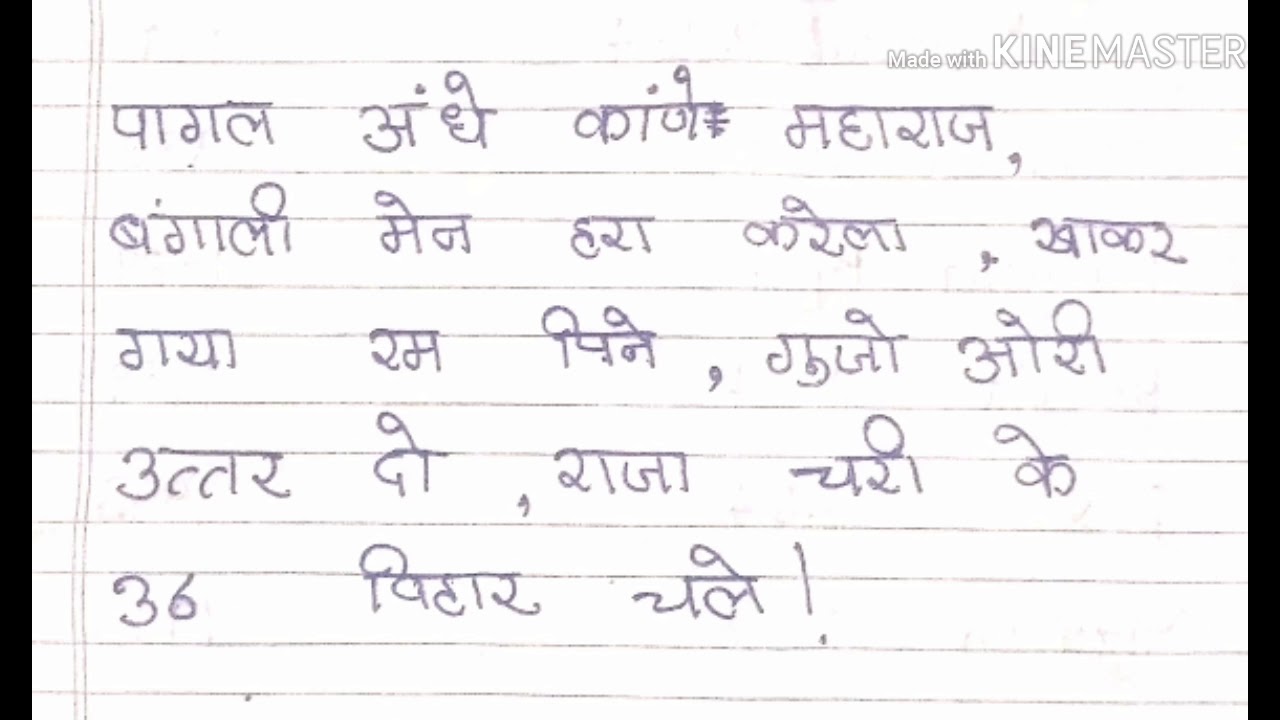 Made with KINEMASTER
पागल अंधे कांणे महाराज,
बंगाली मेन हरा करेला , खाकर
गया रम पिने , गुजो ओरी
उत्तर दो , राजा चरी के
36 विहार चले।